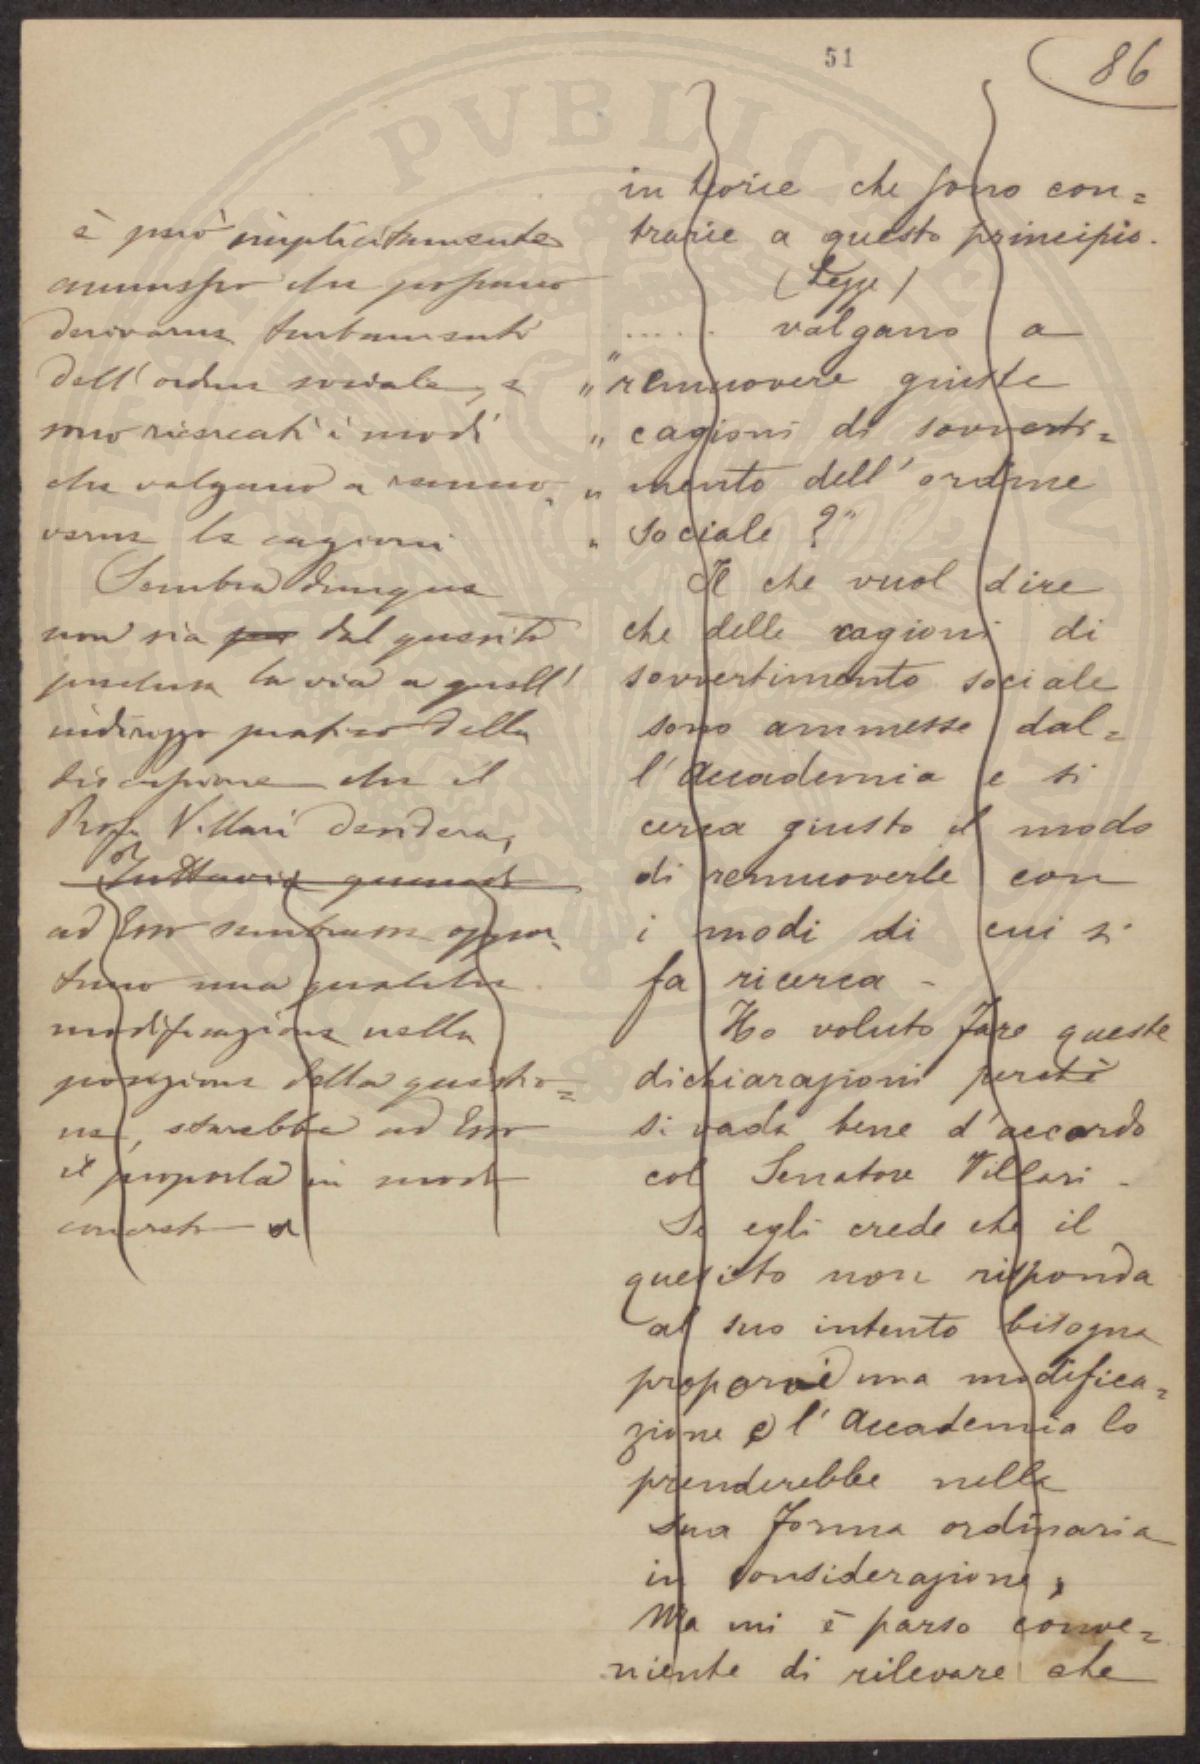 51
86
è però implicitamente
ammesso che possano
derivarne turbamenti
dell'ordine sociale, e
sono ricercati i modi
che valgano a remuo-
verne le cagioni
Sembra dunque
non sia per dal quesito
preclusa la via a quell'
indirizzo pratico della
discussione che il
Prof. Villari desidera,
Tuttavia quando
ad Esso sembrasse oppor-
tuno una qualche
modificazione nella
posizione della questio=
ne, starebbe ad Esso
il proporla in modo
concreto
in teorie che sono con=
trarie a questo principio.
(Legge)
...... valgano a
" remuovere giuste
" cagioni di sovverti=
" mento dell'ordine
" sociale?"
Il che vuol dire
che delle cagioni di
sovvertimento sociale
sono ammesse dal=
l'Accademia e si
cerca giusto il modo
di remuoverle con
i modi di cui si
fa ricerca -
Ho voluto fare queste
dichiarazioni perchè
si vada bene d'accordo
col Senatore Villari -
Se egli crede che il
quesito non risponda
al suo intento bisogna
proporvi una modifica=
zione e l'Accademia lo
prenderebbe nella
sua forma ordinaria
in considerazione,
Ma mi è parso conve=
niente di rilevare che